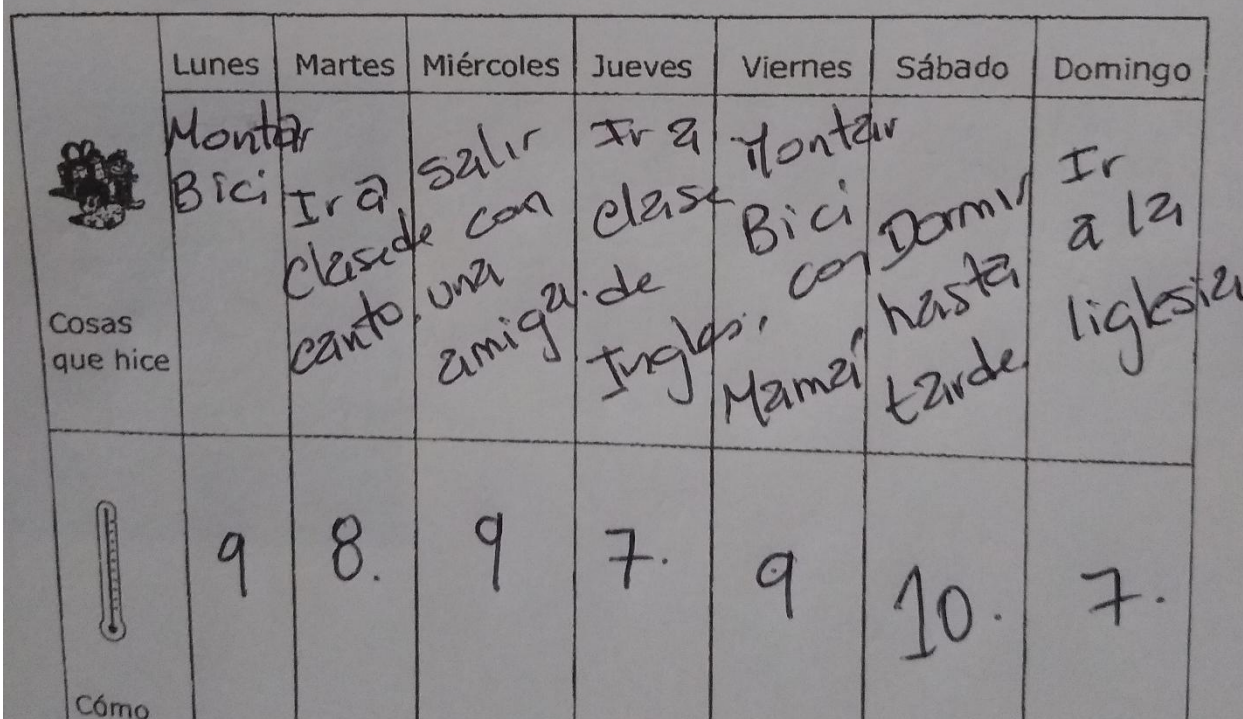 Lunes Martes Miércoles Jueves Viernes Sábado Domingo
Cosas
que hice
Montar
Bici
Ir a
clase de
canto.
Salir
con
una
amiga.
Ir a
clase
de
Ingles.
Montar
Bici
con
Mamá
Dormir
hasta
tarde.
Ir
a la
iiglesia
9 8. 9 7. 9 10. 7.
Cómo